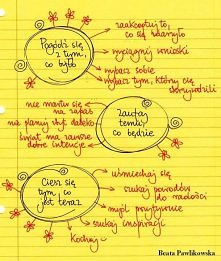 Pogódź się
z tym,
co było
zaakceptuj to,
co się zdarzyło
wyciągnij wnioski
wybacz sobie
wybacz tym, którzy cię
skrzywdzili
nie martw się
na zapas
nie planuj zbyt daleko
świat ma zawsze
dobre intencje
Zaufaj
temu,
co będzie
Ciesz się
tym, co
jest teraz
uśmiechaj się
szukaj powodów
do radości
myśl pozytywnie
szukaj inspiracji
Kochaj
Beata Pawlikowska